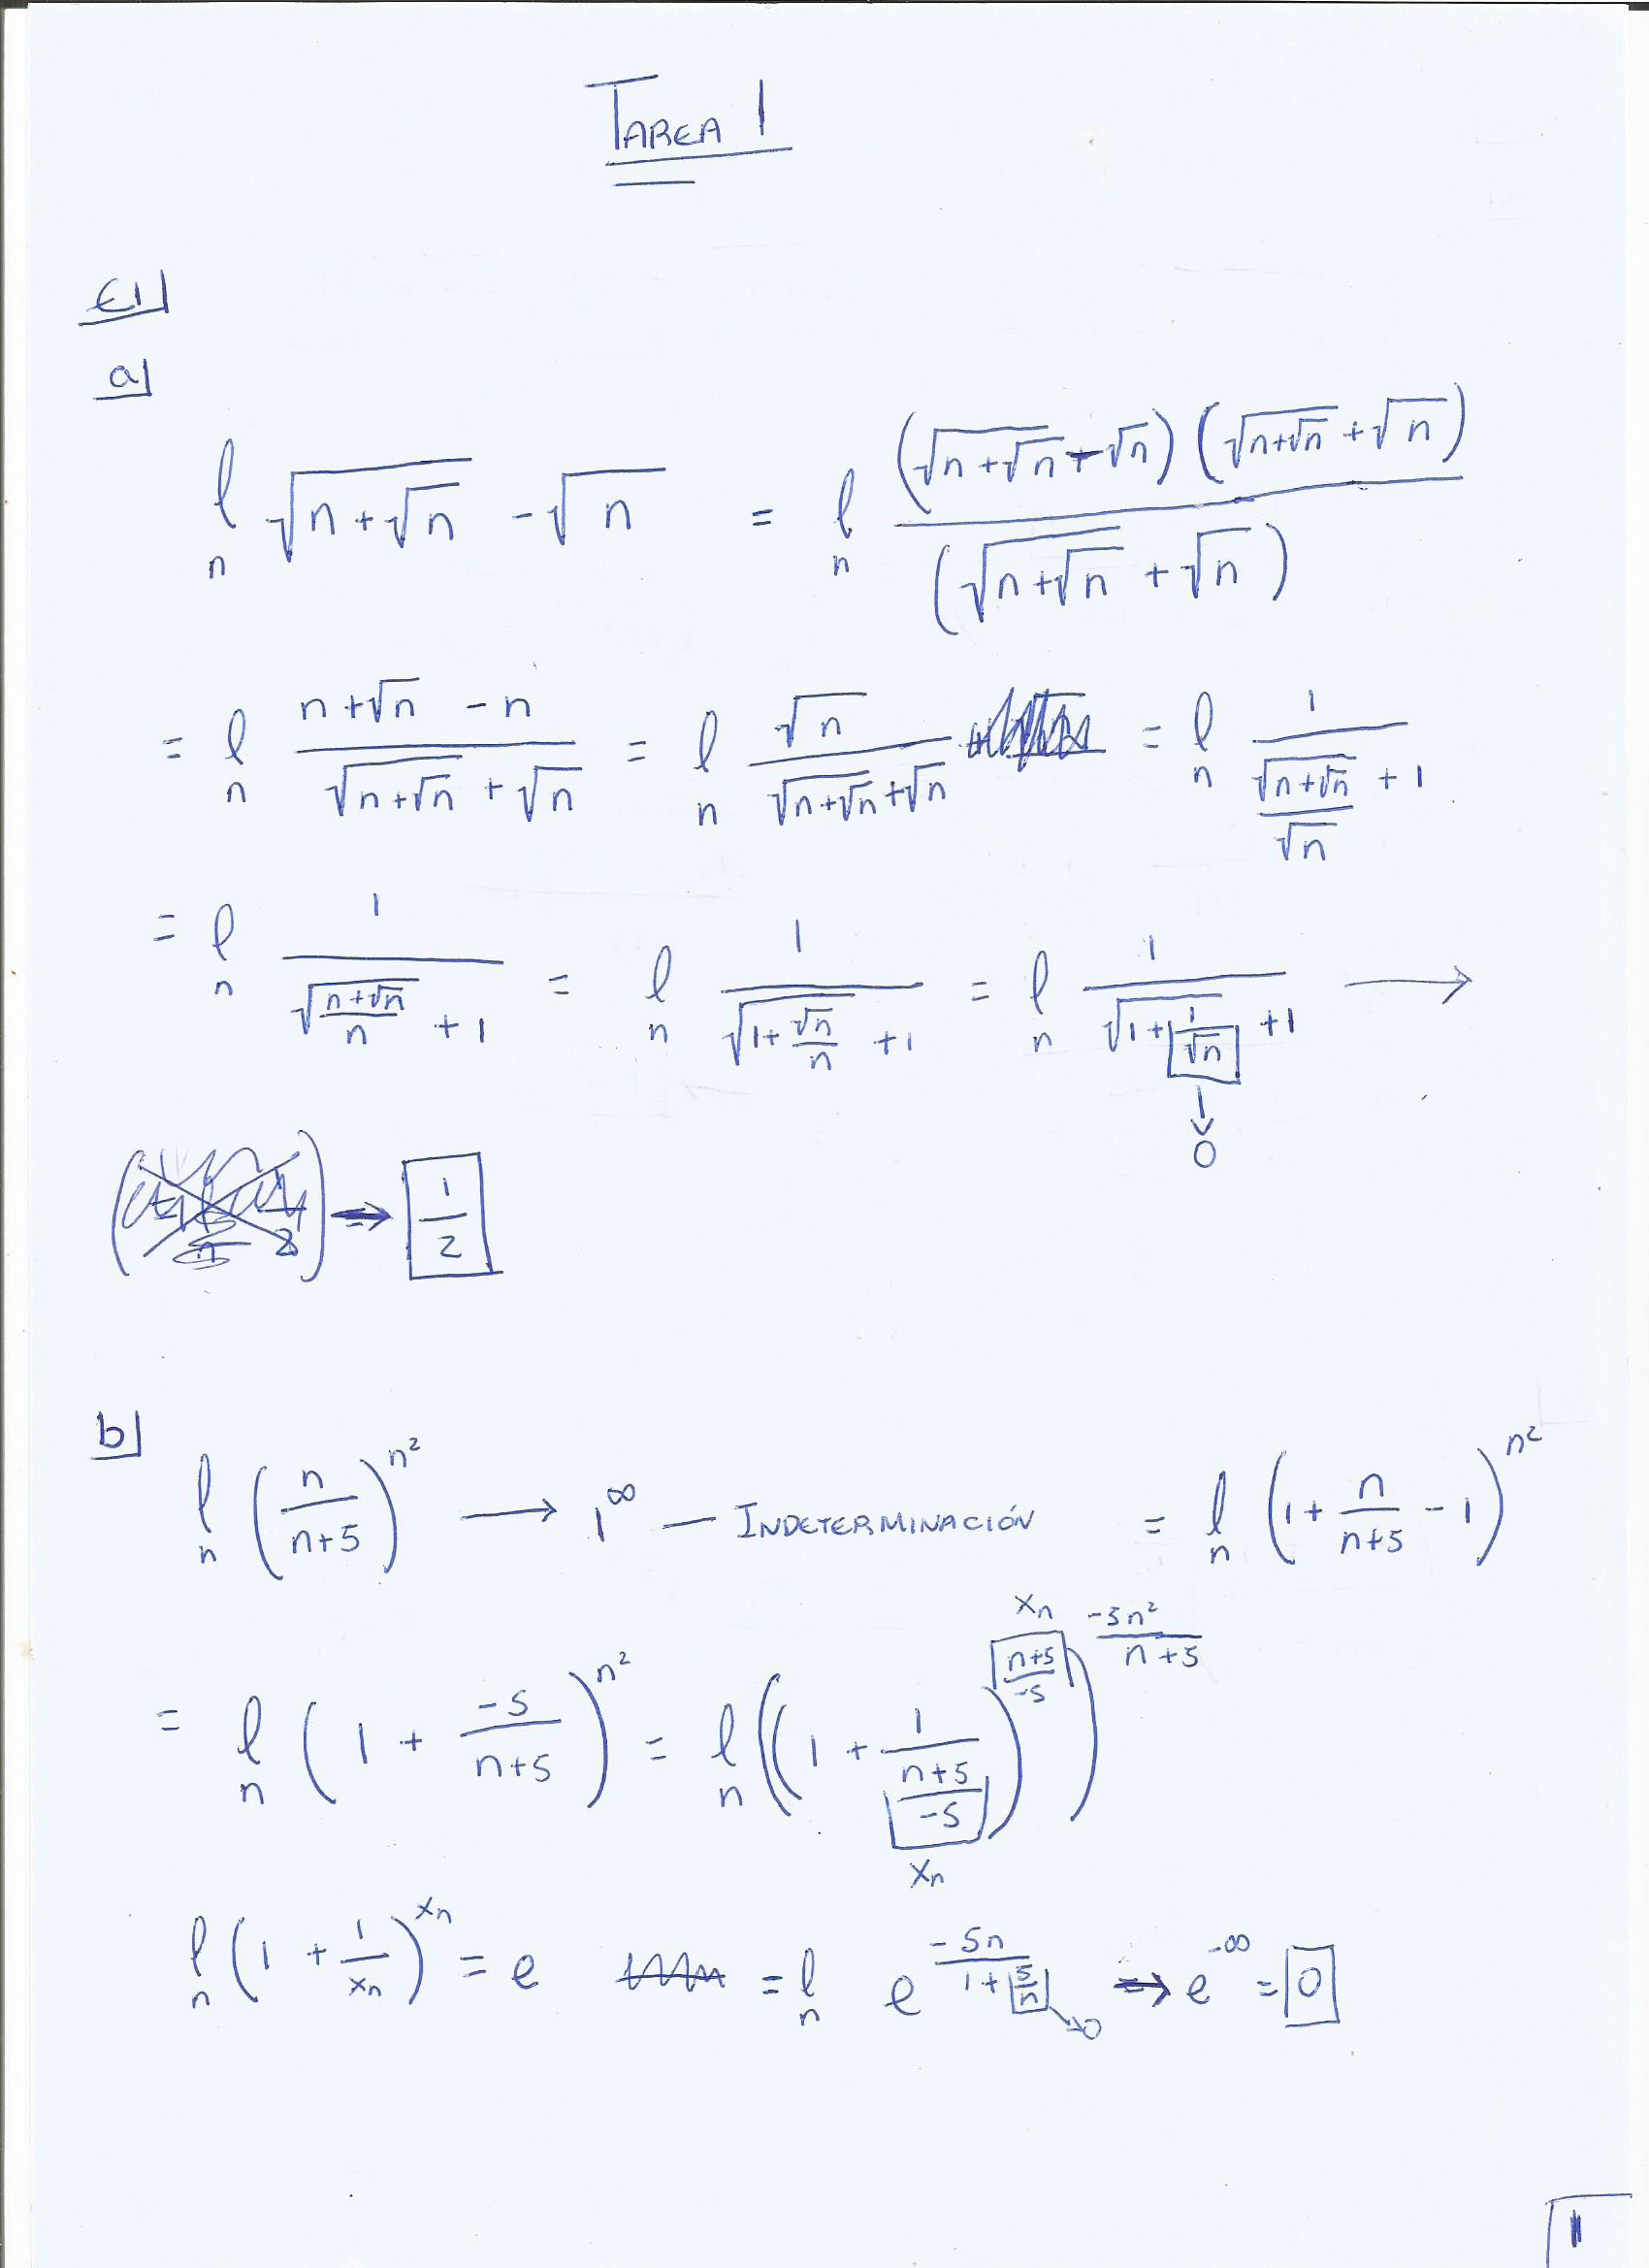 TAREA 1
E1
a
l_n √(n+√n) - √n = l_n ((√(n+√n) - √n)(√(n+√n) + √n)) / (√(n+√n) + √n)
= l_n (n+√n - n) / (√(n+√n) + √n) = l_n √n / (√(n+√n) + √n) = l_n 1 / (√(n+√n)/√n + 1)
= l_n 1 / (√((n+√n)/n) + 1) = l_n 1 / (√(1+√n/n) + 1) = l_n 1 / (√(1+1/√n) + 1) →
↓
0
→ 1/2
b
l_n (n/(n+5))^(n²) → 1^∞ — INDETERMINACIÓN = l_n (1 + n/(n+5) - 1)^(n²)
= l_n (1 + -5/(n+5))^(n²) = l_n ((1 + 1/((n+5)/-5))^((n+5)/-5))^(-5n²/(n+5))
x_n
x_n
l_n (1 + 1/x_n)^(x_n) = e = l_n e^(-5n/(1+5/n)) → e^(-∞) = 0
→0
1